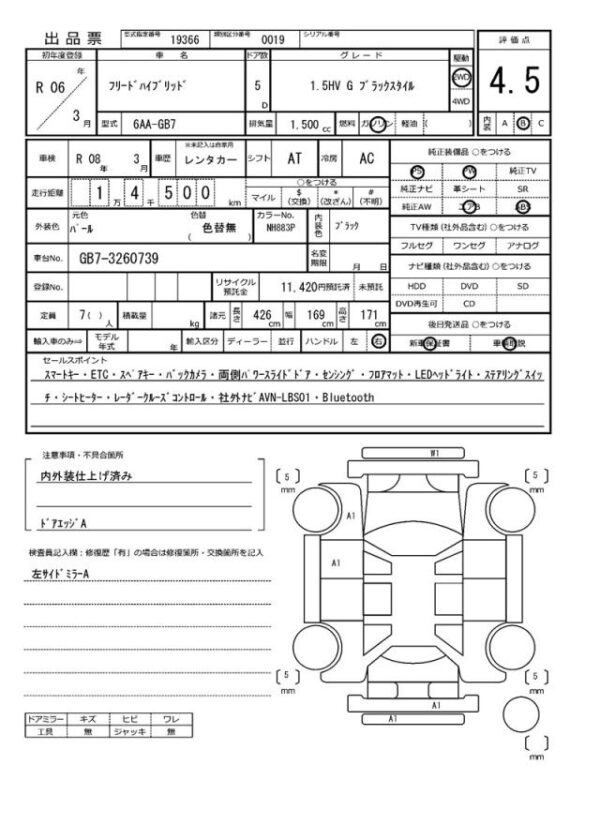 出品票 型式指定番号 19366 類別区分番号 0019 シリアル番号
評価点
初年度登録 車名 ドア数 グレード 駆動
R 06 年 3 月
フリードハイブリッド
5 D
1.5HV G ブラックスタイル
2WD
4WD
4.5
型式 6AA-GB7 排気量 1,500 cc 燃料 ガソリン 軽油 ( )
内装 A B C
車検 R 08 年 3 月 車歴 ※未記入は自家用 レンタカー シフト AT 冷房 AC
純正装備品 ○をつける
PS PW 純正TV
純正ナビ 革シート SR
純正AW エアB ABS
走行距離 1 万 4 千 5 0 0 km
○をつける
マイル $ (交換) * (改ざん) # (不明)
外装色 元色 パール 色替 色替無 ( ) カラーNo. NH883P 内装色 ブラック
TV種類(社外品含む)○をつける
フルセグ ワンセグ アナログ
車台No. GB7-3260739 名変期限 月 日
ナビ種類(社外品含む)○をつける
HDD DVD SD
DVD再生可 CD
登録No. リサイクル預託金 11,420円預託済 未預託
定員 7( )人 積載量 kg 諸元 長さ 426 cm 幅 169 cm 高さ 171 cm
後日発送品 ○をつける
新車保証書 車輌取説
輸入車のみ⇒ モデル年式 年 輸入区分 ディーラー 並行 ハンドル 左 右
セールスポイント
スマートキー・ETC・スペアキー・バックカメラ・両側パワースライドドア・センシング・フロアマット・LEDヘッドライト・ステアリングスイッ
チ・シートヒーター・レーダークルーズコントロール・社外ナビAVN-LBS01・Bluetooth
注意事項・不具合箇所
内外装仕上げ済み
ドアエッジA
検査員記入欄：修復歴「有」の場合は修復箇所・交換箇所を記入
左サイドミラーA
ドアミラー キズ ヒビ ワレ
工具 無 ジャッキ 無
W1
[ 5 ] mm
[ 5 ] mm
A1
A1
[ 5 ] mm
[ 5 ] mm
A1
A1
[ ] mm